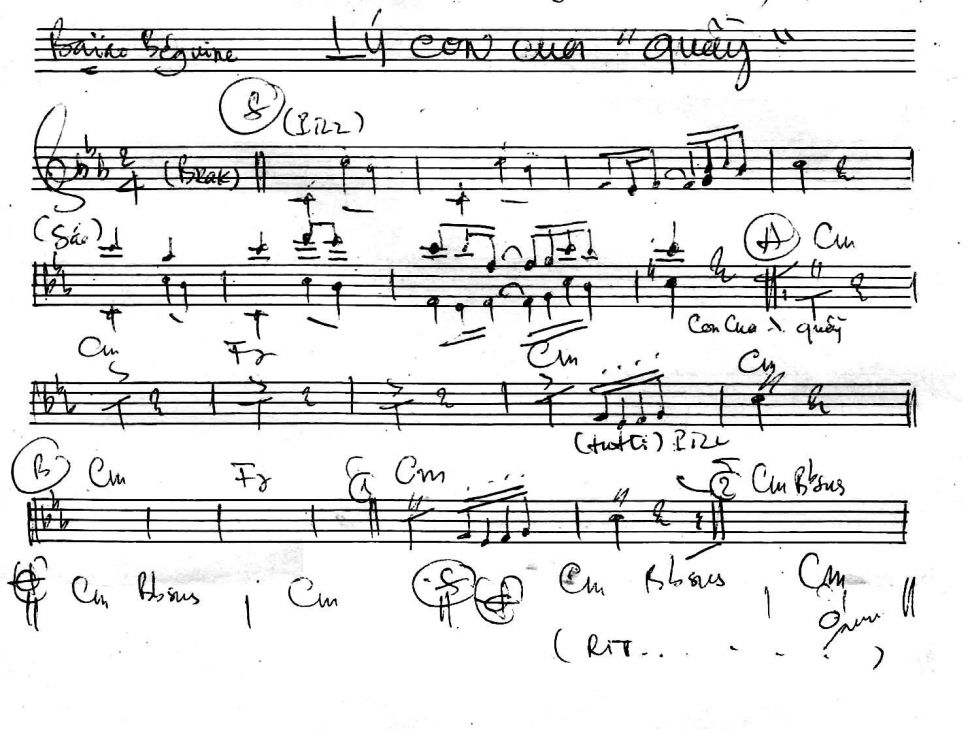 Béguine Lý con cua "quẫy"
S (Pizz)
2
4 (Break)
(Sáo) A Cm
Con Cua quẫy
Cm F7 Cm Cm
(tutti) Pizz
B Cm F7 1 Cm 2 Cm Bbsus
Cm Bbsus Cm S Cm Bbsus Cm
(RIT.. . . . . )